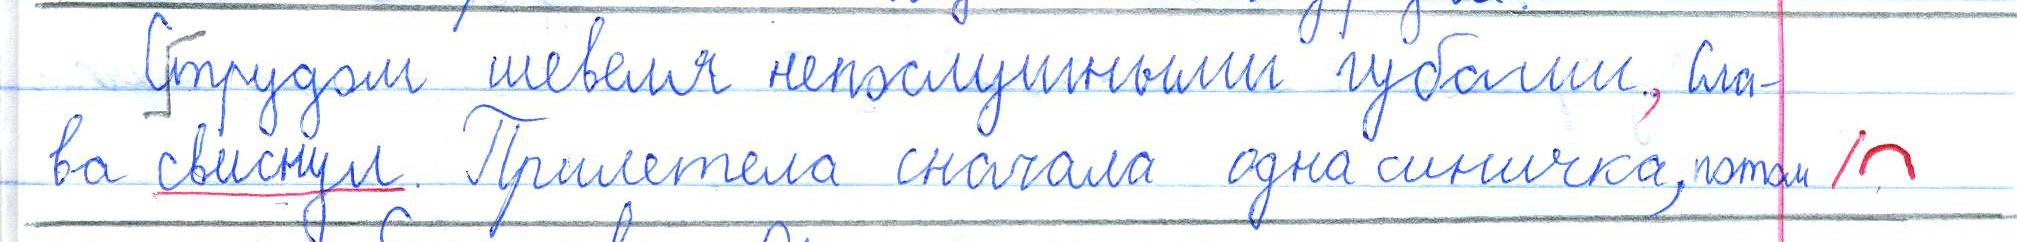 Струдом шевеля непослушными губами, Сла-
ва свиснул. Прилетела сначала одна синичка, потом